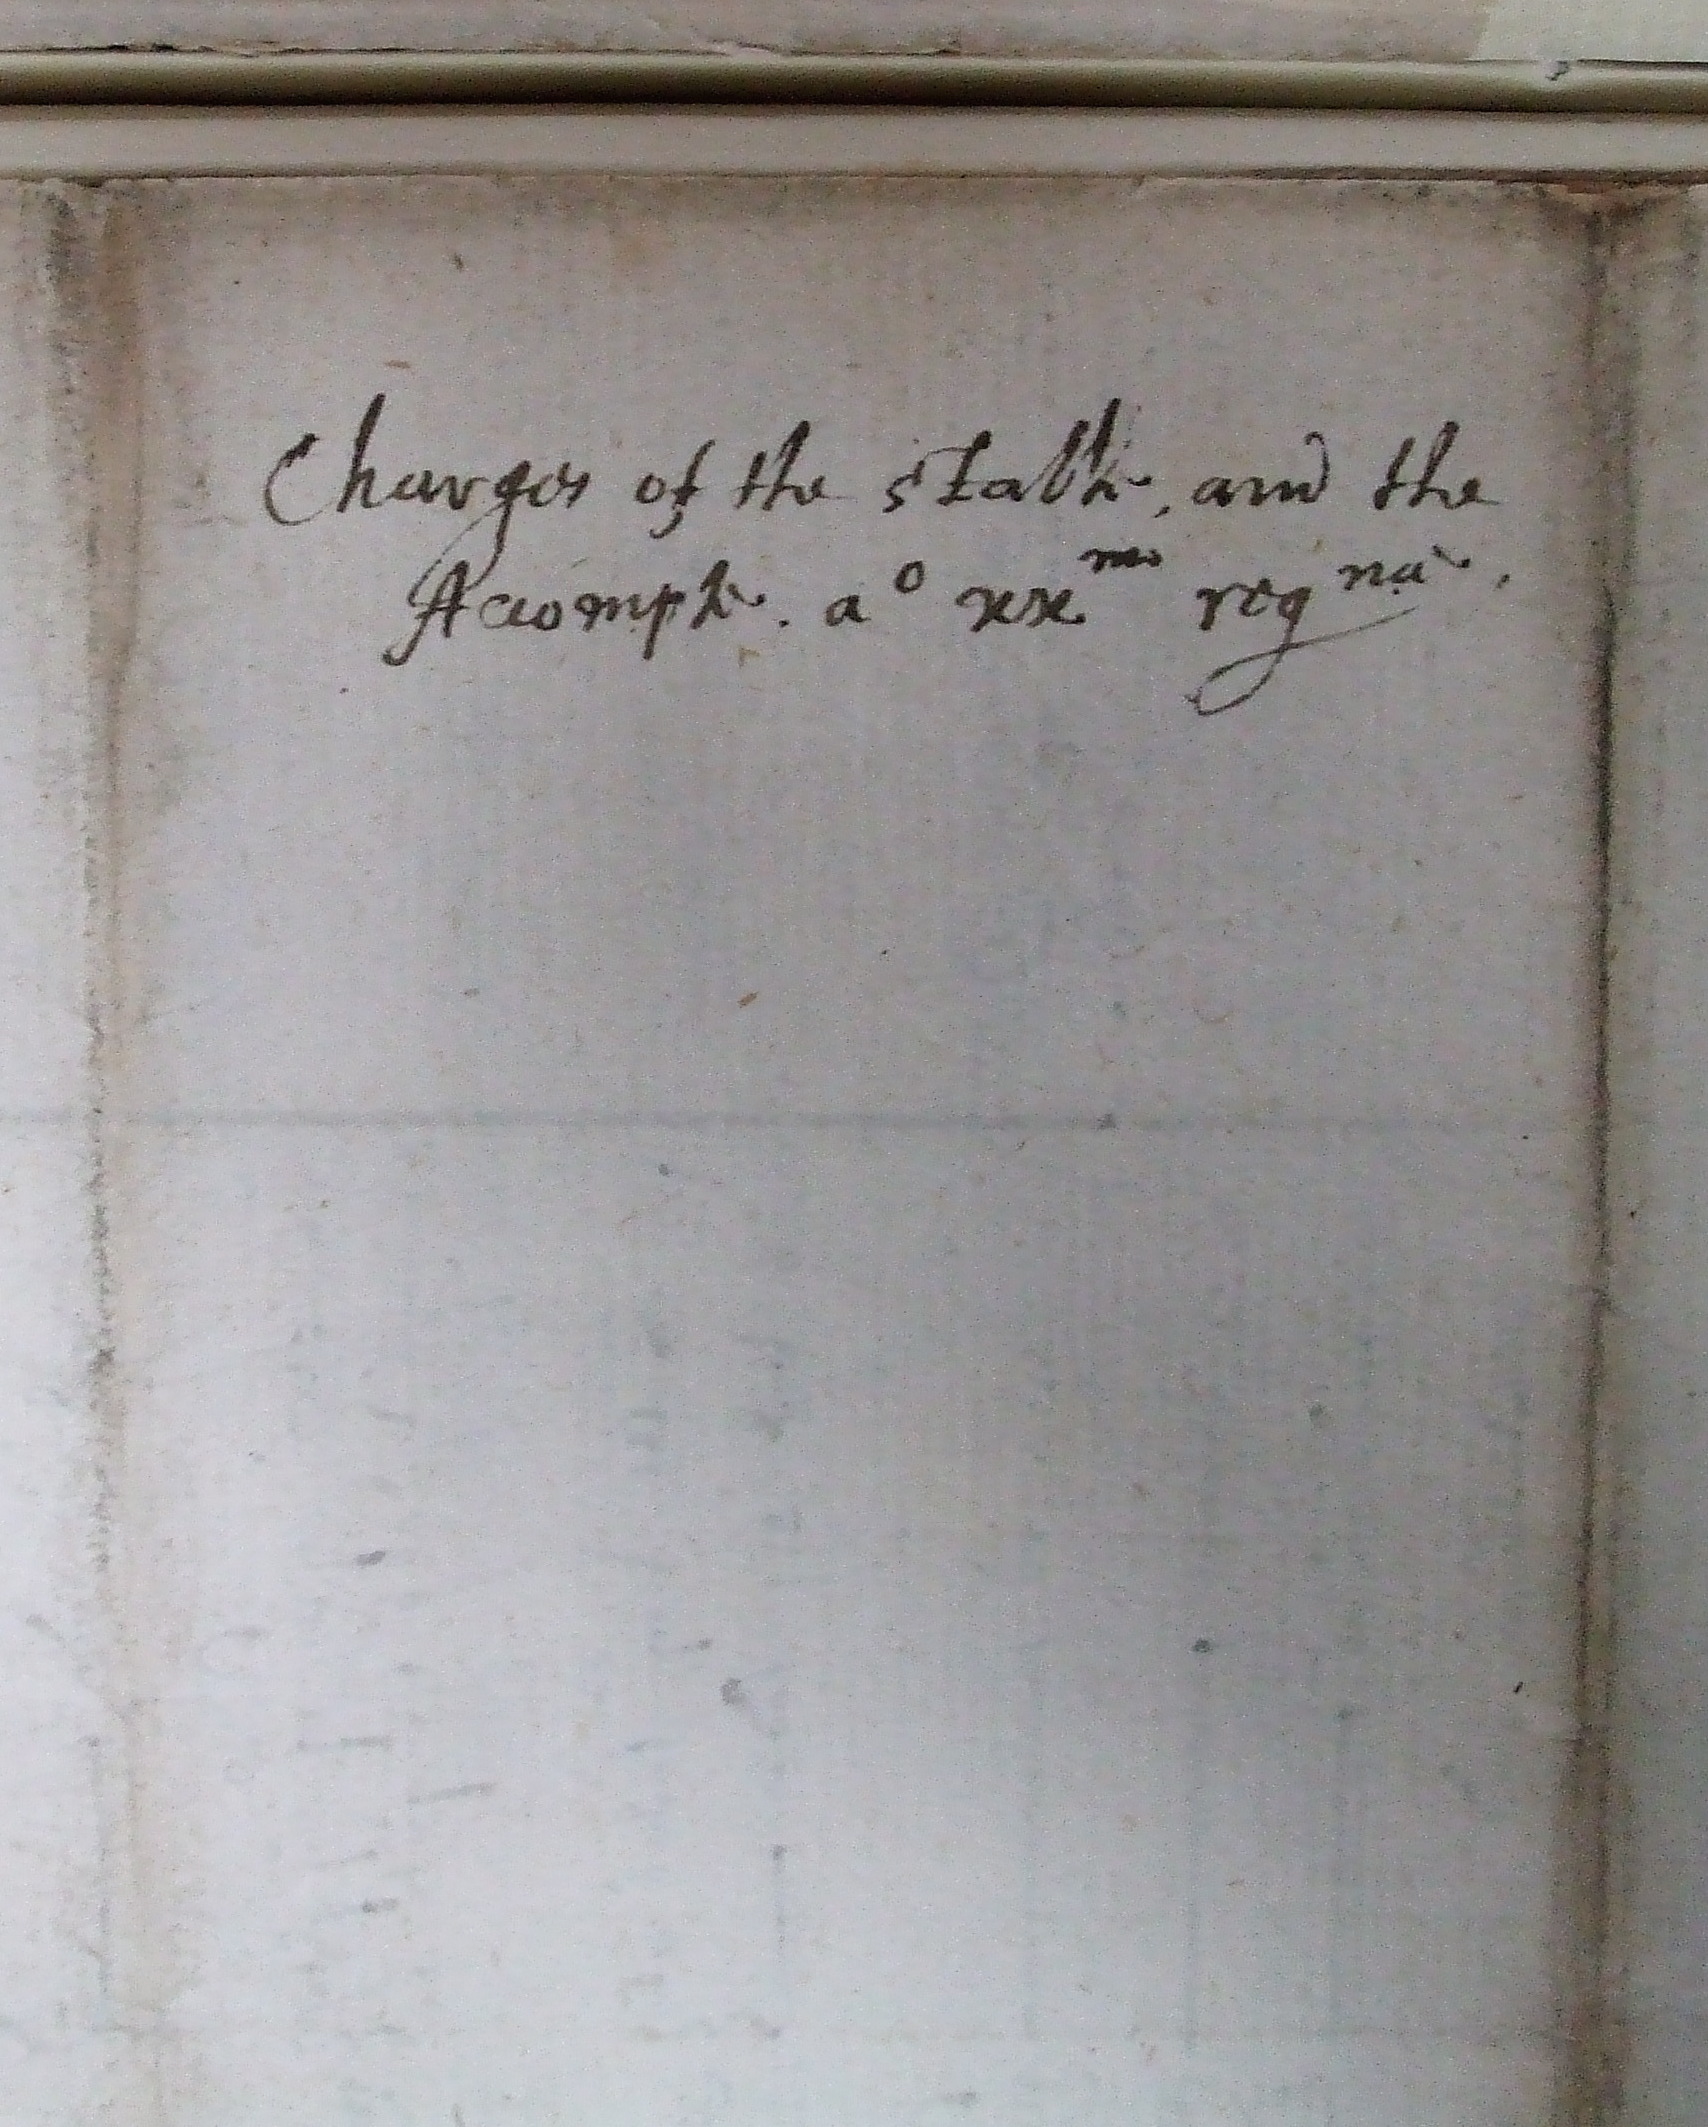 Charges of the stable, and the
Accompte. a⁰ xxᵐᵒ regⁿᵃᵉ.